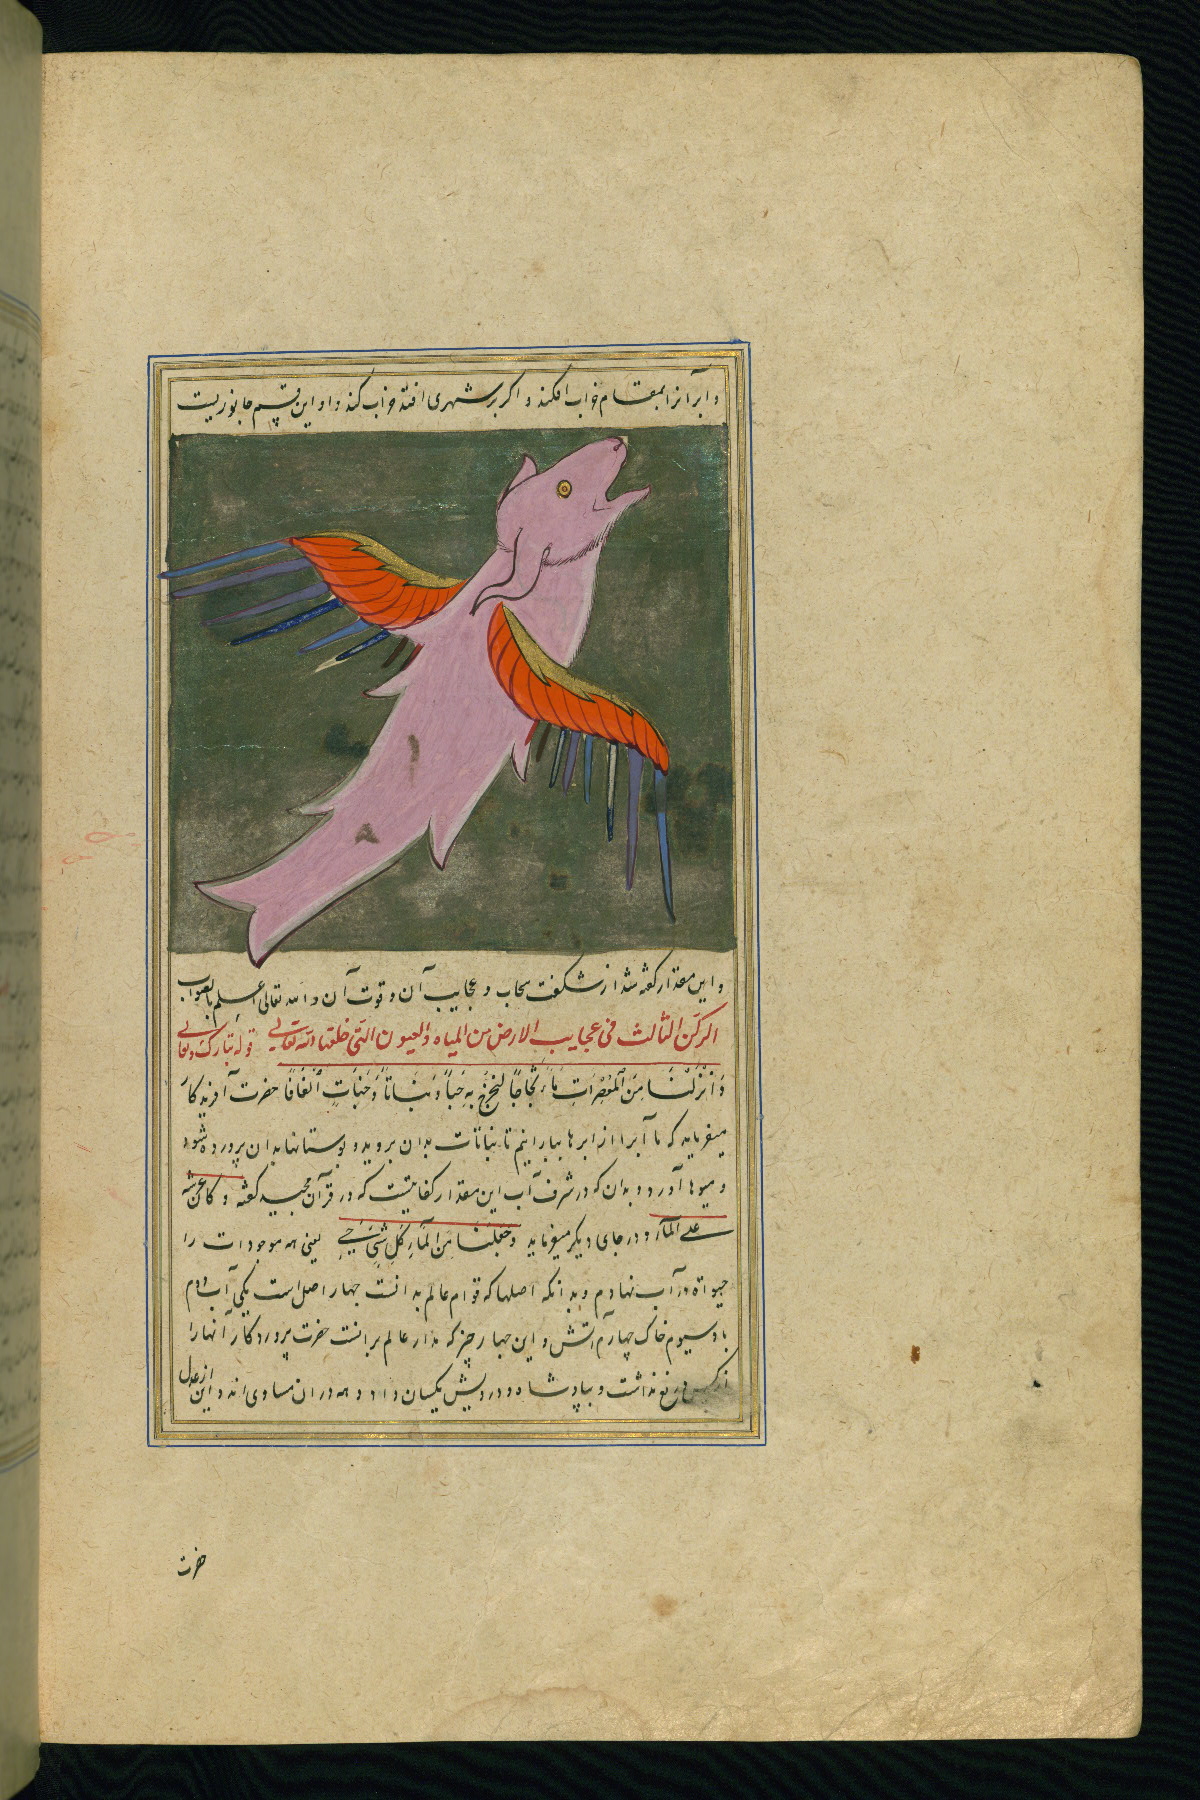 و ابر آنرا بمقام خواب افکند و اگر بر شهری افتد خراب کند و او این قسم جانوریست
و این مقدار گفته شد از شگفت سحاب و عجایب آن و قوت آن و الله تعالی اعلم بالصواب
الرکن الثالث فی عجایب الارض من المیاه و العیون التی خلقها الله تعالی قوله تبارک و تعالی
وَاَنْزَلْنَا مِنَ الْمُعْصِرَاتِ مَاءً ثَجَّاجًا لِنُخْرِجَ بِهِ حَبًّا وَنَبَاتًا وَجَنَّاتٍ اَلْفَافًا حضرت آفریدکار
میفرماید که ما آب را از ابرها ببارانیم تا نباتات بدان بروید و بوستانها بدان پرورده شود
و میوها آورد و بدان که در شرف آب این مقدار کفایتست که در قرآن مجید گفته و کان عرشه
علی المآء و در جای دیگر میفرماید وجعلنا من المآء کل شیء حی یعنی همه موجودات را
حیوة در آب نهادم و بدانکه اصلها که قوام عالم بدانست چهار اصل است یکی آب دوم
باد سیوم خاک چهارم آتش و این چهار چیز که مدار عالم برانست حضرت پروردکار آنها را
از کس دریغ نداشت و بپادشاه و درویش یکسان داد و همه در ان مساوی اند و این از عدل
حضرت